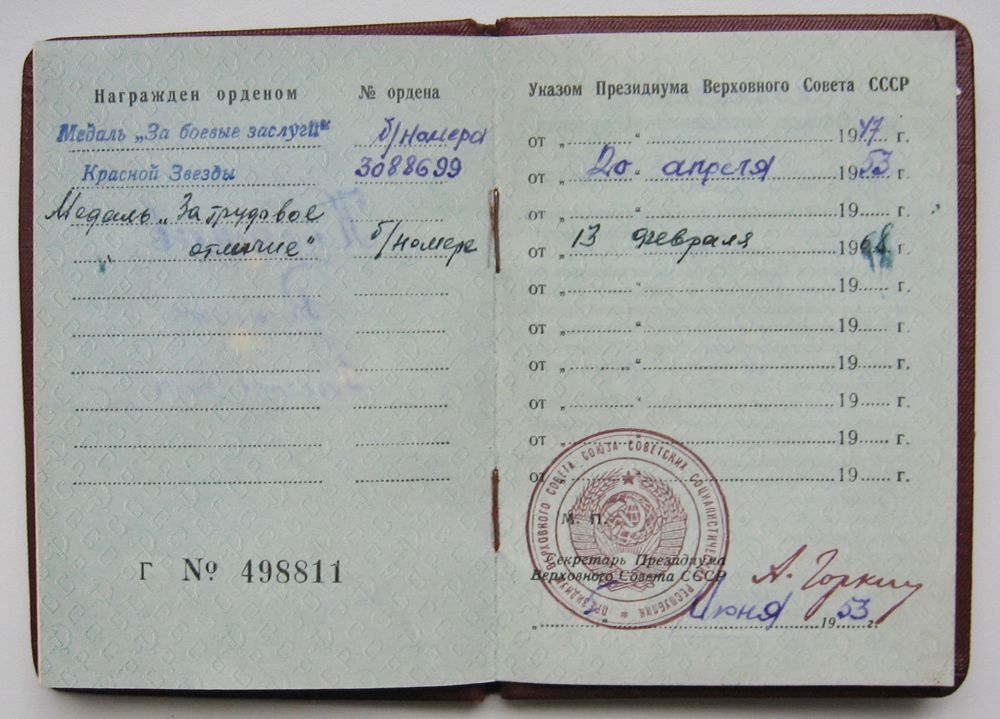 Награжден орденом № ордена
Медаль „За боевые заслуги“ б/номера
Красной Звезды 3088699
Медаль „За трудовое
отличие“ б/номера
Г № 498811
Указом Президиума Верховного Совета СССР
от „ “ 1947 г.
от „ 20 “ апреля 1953 г.
от „ “ 19 г.
от „ 13 “ февраля 19 г.
от „ “ 19 г.
от „ “ 19 г.
от „ “ 19 г.
от „ “ 19 г.
от „ “ 19 г.
от „ “ 19 г.
ПРЕЗИДИУМ ВЕРХОВНОГО СОВЕТА СОЮЗА СОВЕТСКИХ СОЦИАЛИСТИЧЕСКИХ РЕСПУБЛИК
М. П.
Секретарь Президиума
Верховного Совета СССР А. Горкин
„ “ Июня 1953 г.